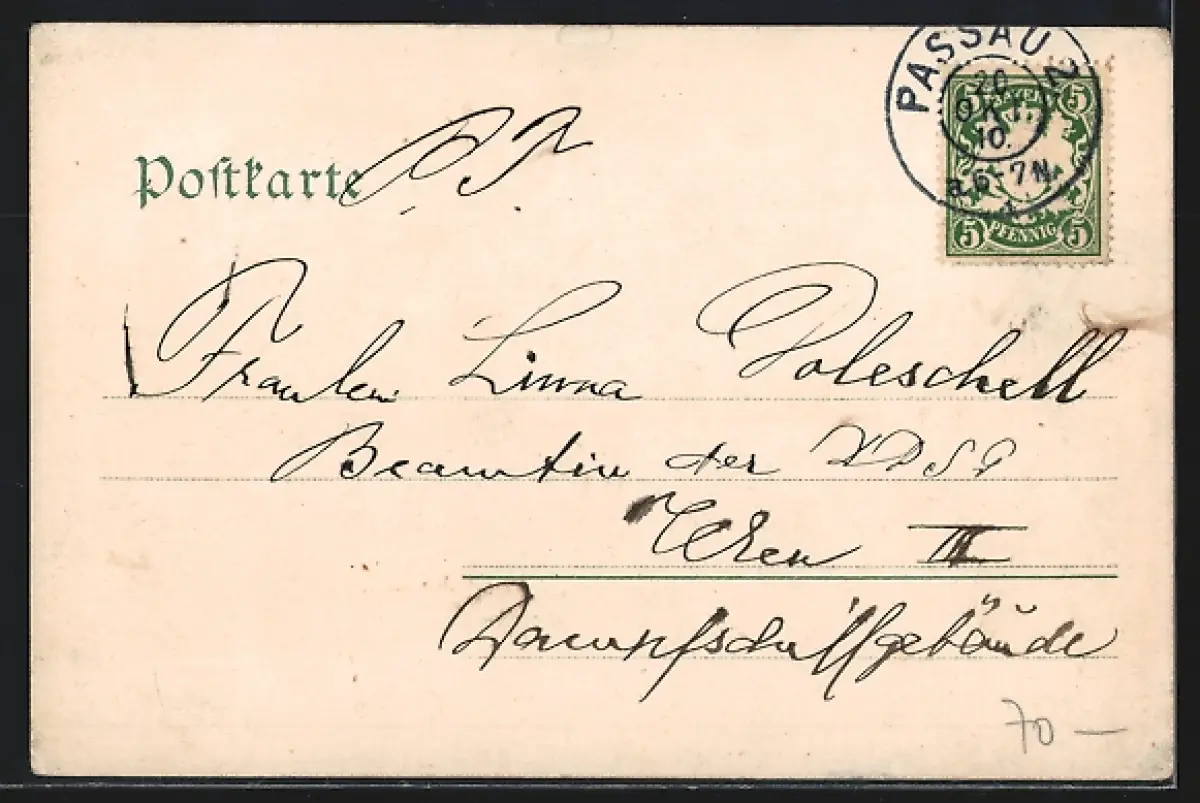 PASSAU 2
20
OKT.
10.
a. 6-7 N.
5 BAYERN 5
5 PFENNIG 5
Poſtkarte P. T.
Fraulein Linna Poleschell
Beamtin der
Wien III
Dampfschiffgebäude
70 —